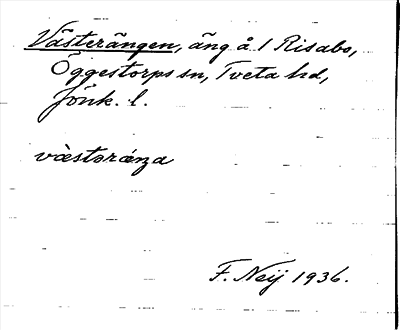 Västerängen, äng å 1 Risabo,
Öggestorps sn, Tveta hd,
Jönk. l.
væ̀stəráŋa
F. Neij 1936.